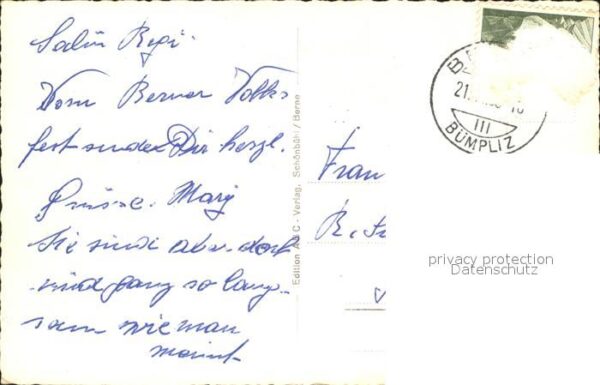 Salü Regi.
Vom Berner Volks
fest sendet Dir herzl.
Grüsse. Mary
Sie sind aber doch
nid ganz so lang-
sam wie man
meint
Edition ABC - Verlag, Schönbühl / Berne
Frau
B
21.
III
BÜMPLIZ
privacy protection
Datenschutz